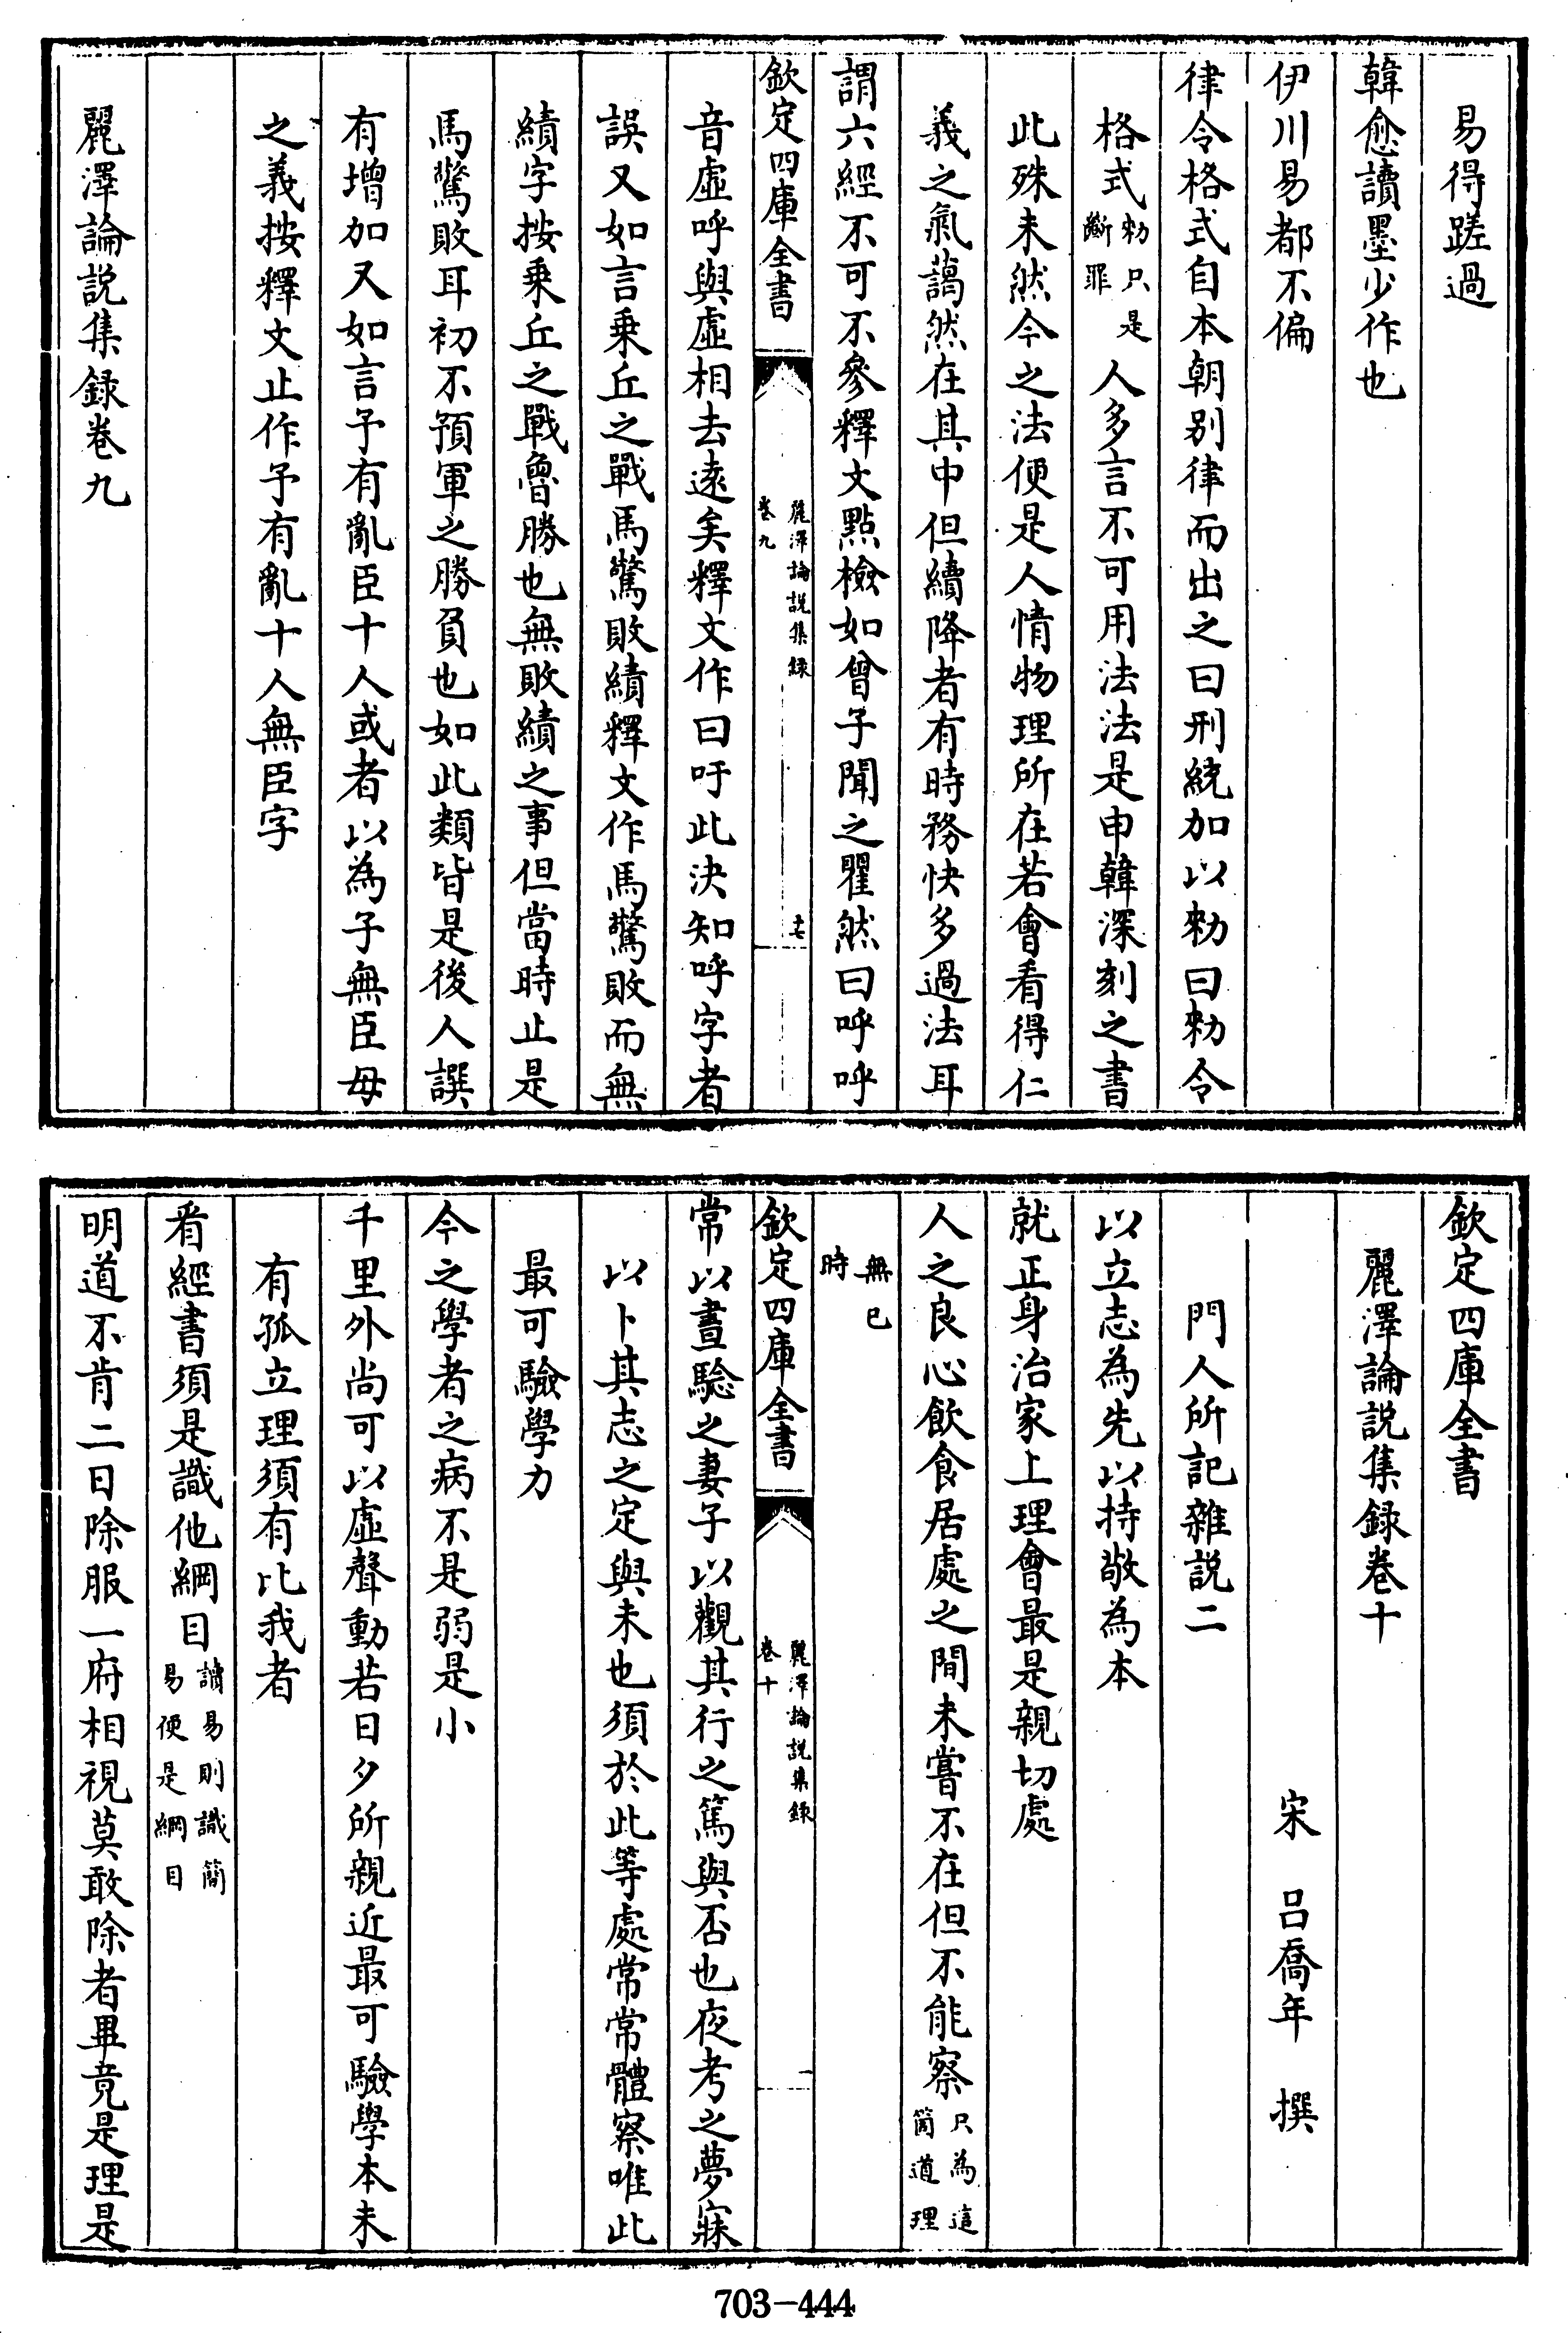 易得蹉過
韓愈讀墨少作也
伊川易都不偏
律令格式自本朝別律而出之曰刑統加以勑曰勑令
格式勑只是斷罪人多言不可用法法是申韓深刻之書
此殊未然今之法便是人情物理所在若會看得仁
義之氣藹然在其中但續降者有時務快多過法耳
謂六經不可不參釋文點檢如曾子聞之瞿然曰呼呼
欽定四庫全書
麗澤論說集錄
卷九
十七
音虛呼與虛相去遠矣釋文作曰吁此決知呼字者
誤又如言乘丘之戰馬驚敗績釋文作馬驚敗而無
績字按乘丘之戰魯勝也無敗績之事但當時止是
馬驚敗耳初不預軍之勝負也如此類皆是後人譔
有增加又如言予有亂臣十人或者以為子無臣母
之義按釋文止作予有亂十人無臣字
麗澤論說集録卷九
欽定四庫全書
麗澤論說集録卷十
宋 呂喬年 撰
門人所記雜說二
以立志為先以持敬為本
就正身治家上理會最是親切處
人之良心飲食居處之間未嘗不在但不能察只為這箇道理
無已時
欽定四庫全書
麗澤論說集錄
卷十
一
常以晝驗之妻子以觀其行之篤與否也夜考之夢寐
以卜其志之定與未也須於此等處常常體察唯此
最可驗學力
今之學者之病不是弱是小
千里外尚可以虛聲動若日夕所親近最可驗學本末
有孤立理須有比我者
看經書須是識他綱目讀易則識簡易便是綱目
明道不肯二日除服一府相視莫敢除者畢竟是理是
703-444